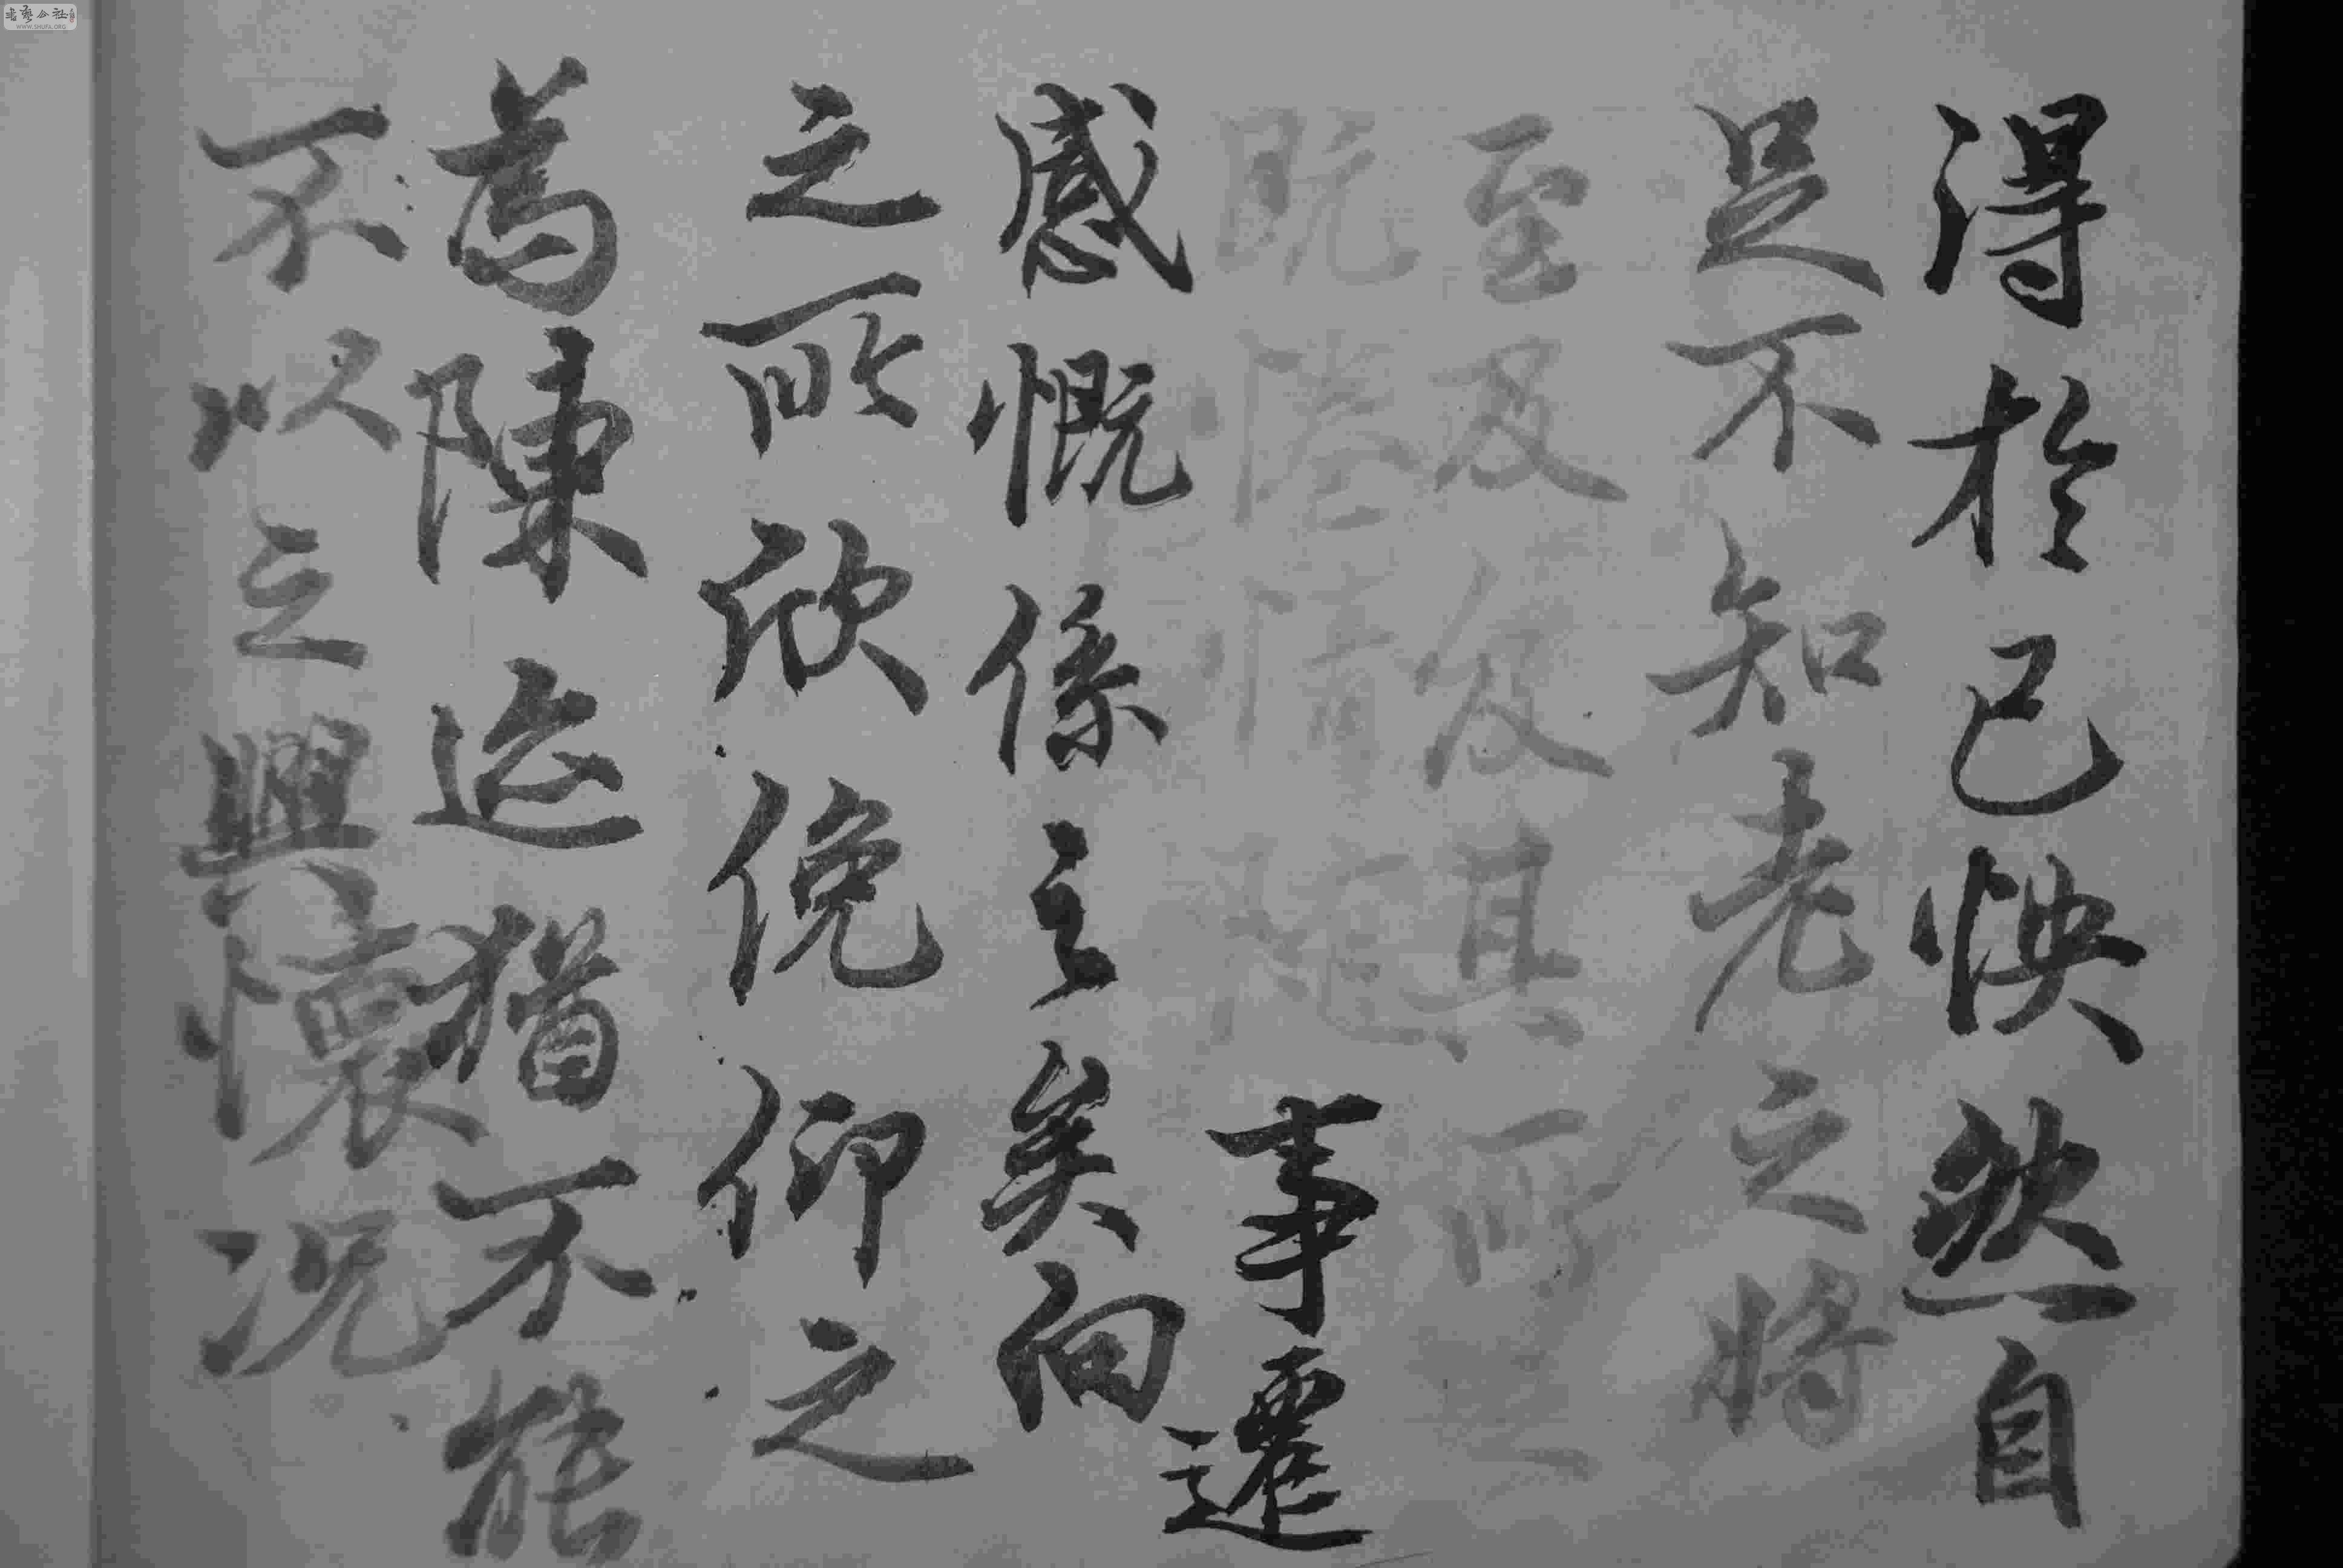 得於己怏然自
足不知老之將
至及其所之
既惓情隨事遷
感慨係之矣向
之所欣俛仰之
為陳迹猶不能
不以之興懷況
WWW.SHUFA.ORG